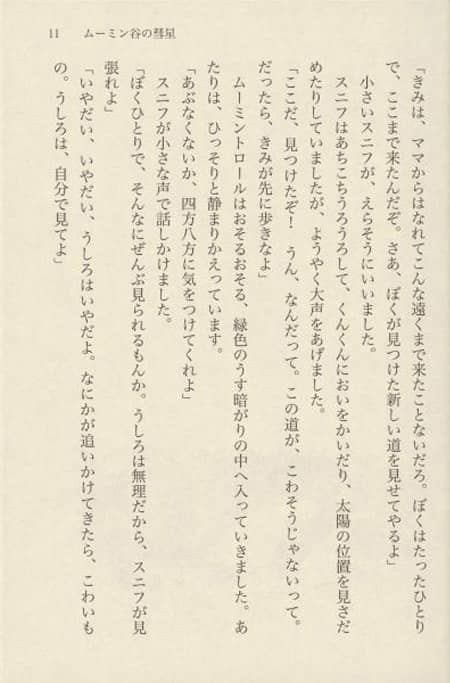 11　ムーミン谷の彗星
「きみは、ママからはなれてこんな遠くまで来たことないだろ。ぼくはたったひとり
で、ここまで来たんだぞ。さあ、ぼくが見つけた新しい道を見せてやるよ」
小さいスニフが、えらそうにいいました。
スニフはあちこちうろうろして、くんくんにおいをかいだり、太陽の位置を見さだ
めたりしていましたが、ようやく大声をあげました。
「ここだ、見つけたぞ！　うん、なんだって。この道が、こわそうじゃないって。
だったら、きみが先に歩きなよ」
ムーミントロールはおそるおそる、緑色のうす暗がりの中へ入っていきました。あ
たりは、ひっそりと静まりかえっています。
「あぶなくないか、四方八方に気をつけてくれよ」
スニフが小さな声で話しかけました。
「ぼくひとりで、そんなにぜんぶ見られるもんか。うしろは無理だから、スニフが見
張れよ」
「いやだい、いやだい、うしろはいやだよ。なにかが追いかけてきたら、こわいも
の。うしろは、自分で見てよ」